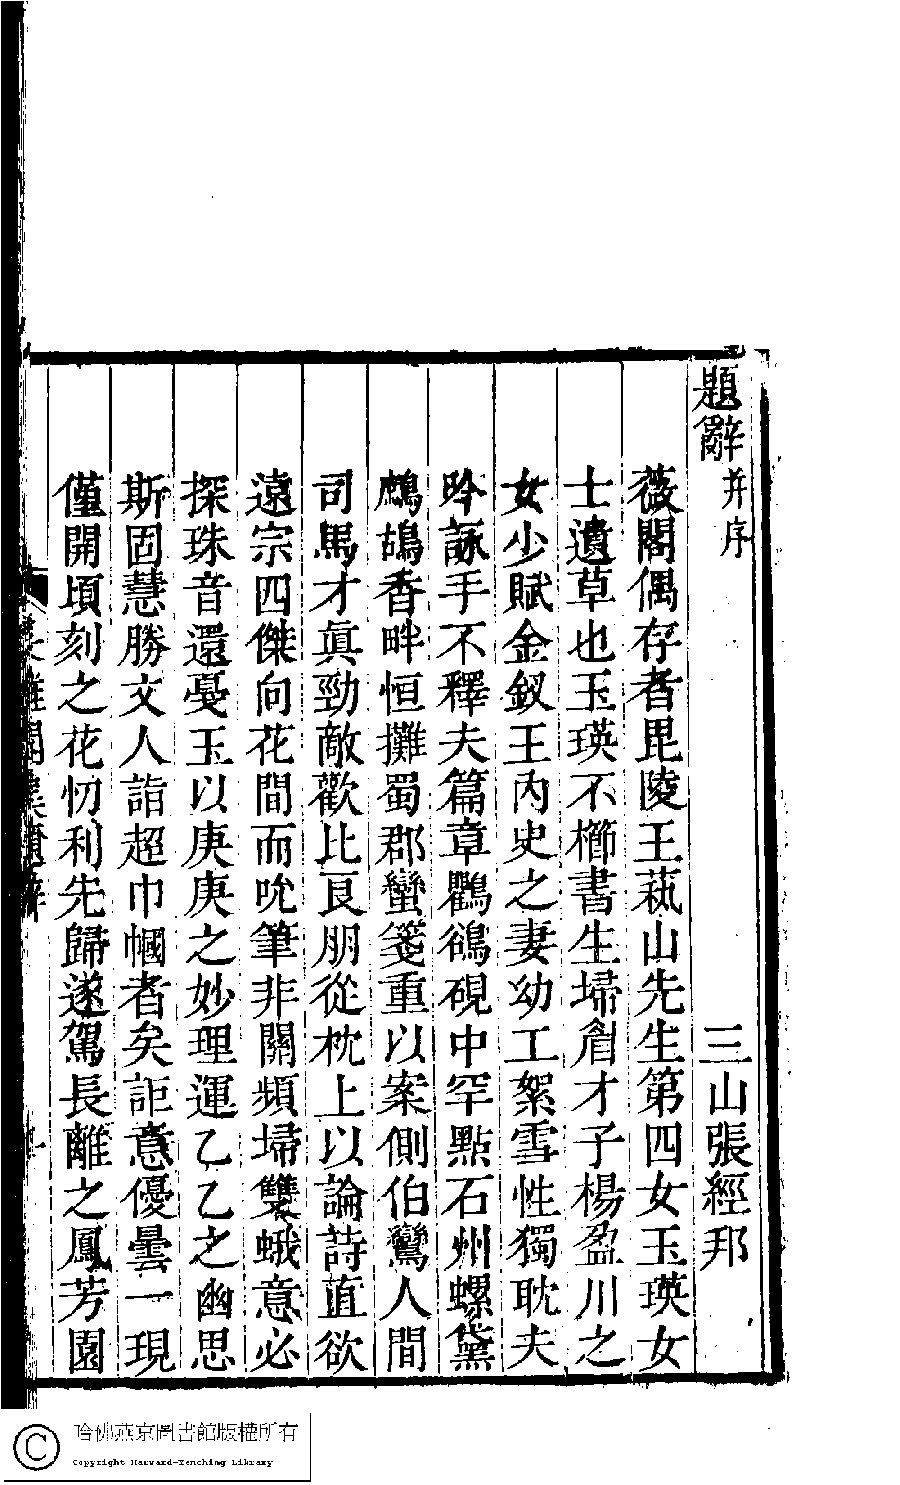 題辭并序
三山張經邦
薇閣偶存者毘陵王蓺山先生第四女玉瑛女
士遺草也玉瑛不櫛書生埽眉才子楊盈川之
女少賦金釵王內史之妻幼工絮雪性獨耽夫
吟詠手不釋夫篇章鸜鵒硯中罕點石州螺黛
鷓鴣香畔恒攤蜀郡蠻箋重以案側伯鸞人間
司馬才眞勁敵歡比良朋從枕上以論詩直欲
遠宗四傑向花間而吮筆非關頻埽雙蛾意必
探珠音還戞玉以庚庚之妙理運乙乙之幽思
斯固慧勝文人詣超巾幗者矣詎意優曇一現
僅開頃刻之花忉利先歸遂駕長離之鳳芳園
長離閣集題辭
一
哈佛燕京圖書館版權所有
Copyright Harvard-Yenching Library